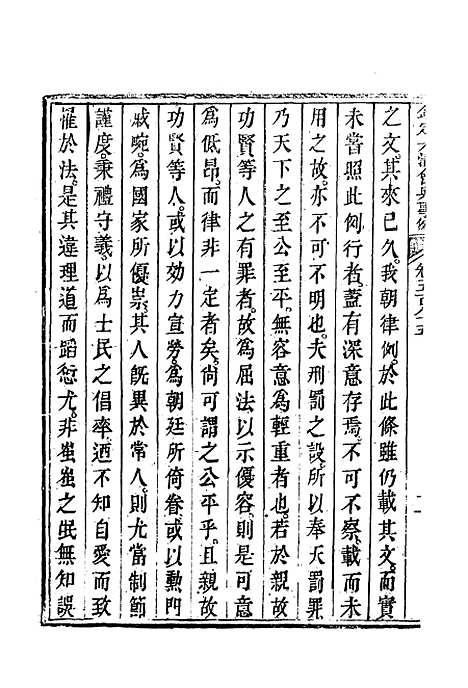 之文。其來已久。我朝律例。於此條雖仍載其文。而實
未嘗照此例行者。蓋有深意存焉。不可不察。載而未
用之故。亦不可不明也。夫刑罰之設。所以奉天罰罪
乃天下之至公至平。無容意爲輕重者也。若於親故
功賢等人之有罪者。故爲屈法以示優容。則是可意
爲低昂。而律非一定者矣。尚可謂之公平乎。且親故
功賢等人。或以効力宣勞。爲朝廷所倚眷。或以勳門
戚畹。爲國家所優崇。其人旣異於常人。則尤當制節
謹度。秉禮守義。以爲士民之倡率。迺不知自愛而致
罹於法。是其違理道而蹈愆尤。非蚩蚩之氓無知誤